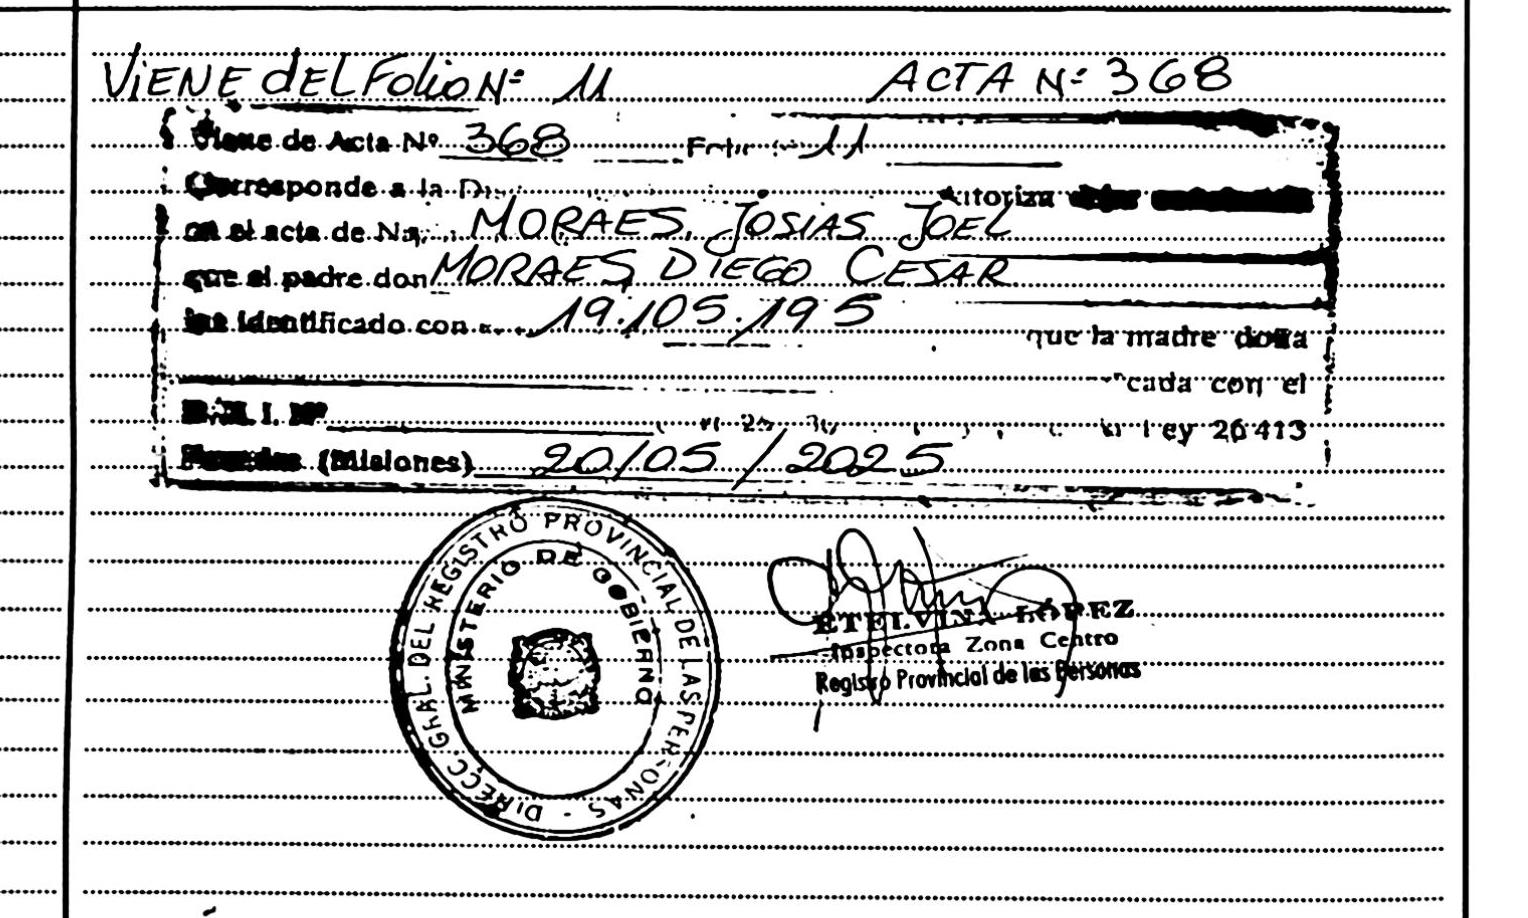 ViENE dEL Folio Nº 11 ACTA Nº 368
Viene de Acta Nº 368 11
Corresponde a la Autoriza
en el acta de MORAES, JOSIAS JOEL
que el padre don MORAES DIEGO CESAR
identificado con 19.105.195 que la madre doña
con el
Ley 26413
(Misiones) 20/05/2025
DIRECC. GRAL. DEL REGISTRO PROVINCIAL DE LAS PERSONAS -
MINISTERIO DE GOBIERNO
ETELVINA LÓPEZ
Inspectora Zona Centro
Registro Provincial de las Personas